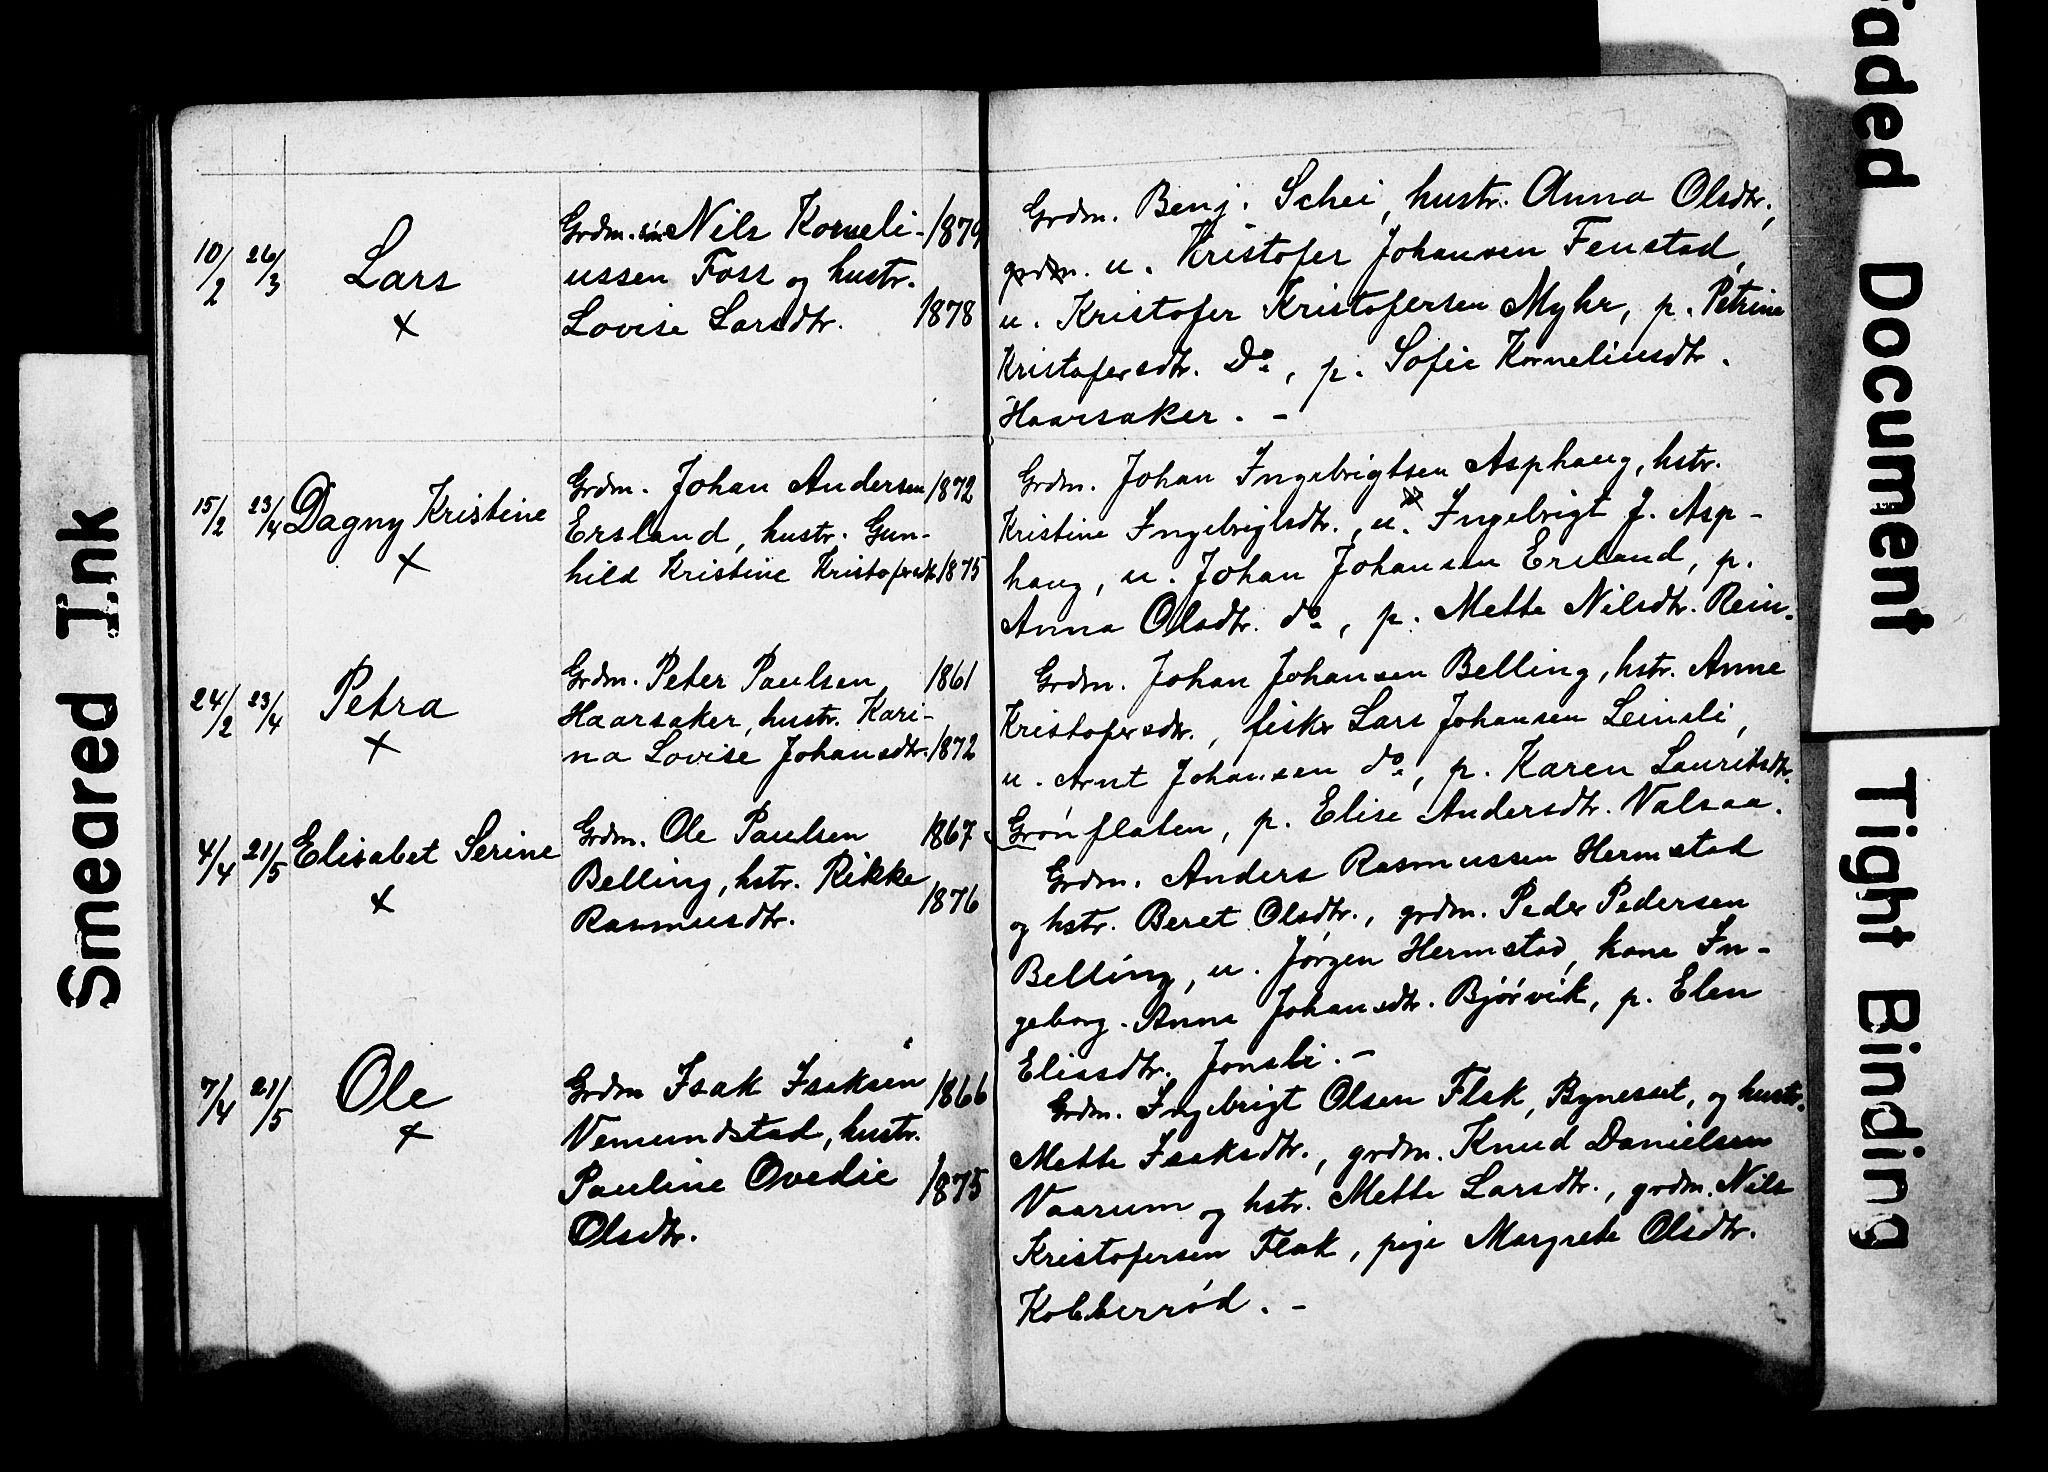 10/2 26/3 Lars
×
Grdm. Nils Korneli- 1879
ussen Foss og hustr.
Lovise Larsdtr. 1878
Grdm. Benj. Schei, hustr. Anna Olsdtr.,
u. Kristofer Johansen Fenstad,
u. Kristofer Kristofersen Myhr, p. Petrine
Kristofersdtr. Do, p. Sofie Korneliusdtr.
Haarsaker. -
15/2 23/4 Dagny Kristine
×
Grdm. Johan Andersen 1872
Ersland, hustr. Gun-
hild Kristine Kristofersdtr. 1875
Grdm. Johan Ingebrigtsen Asphaug, hstr.
Kristine Ingebrigtsdtr., u. Ingebrigt J. Asp-
haug, u. Johan Johansen Ersland, p.
Anna Olsdtr. do, p. Mette Nilsdtr. Rein.
24/2 23/4 Petra
×
Grdm. Peter Paulsen 1861
Haarsaker, hustr. Kari-
na Lovise Johansdtr. 1872
Grdm. Johan Johansen Belling, hstr. Anne
Kristofersdtr., fisker Lars Johansen Leinsli,
u. Arnt Johansen do, p. Karen Lauritsdtr.
Grønflaten, p. Elise Andersdtr. Valsaa.
4/4 21/5 Elisabet Serine
×
Grdm. Ole Paulsen 1867
Belling, hstr. Rikke
Rasmusdtr. 1876
Grdm. Anders Rasmussen Hermstad
og hstr. Beret Olsdtr., grdm. Peder Pedersen
Belling, u. Jørgen Hermstad, kone In-
geborg Anna Johansdtr. Bjørvik, p. Elen
Elissdtr. Jonsli. -
7/4 21/5 Ole
×
Grdm Isak Isaksen 1866
Vemundstad, hustr.
Pauline Ovedie 1875
Olsdtr.
Grdm. Ingebrigt Olsen Flak, Bynesset, og hustr.
Mette Isaksdtr., grdm. Knud Danielsen
Vaarum og hstr. Mette Larsdtr., grdm. Nils
Kristofersen Flak, pige Margrete Olsdtr.
Kobberrød. -
Smeared Ink
Faded Document
Tight Binding